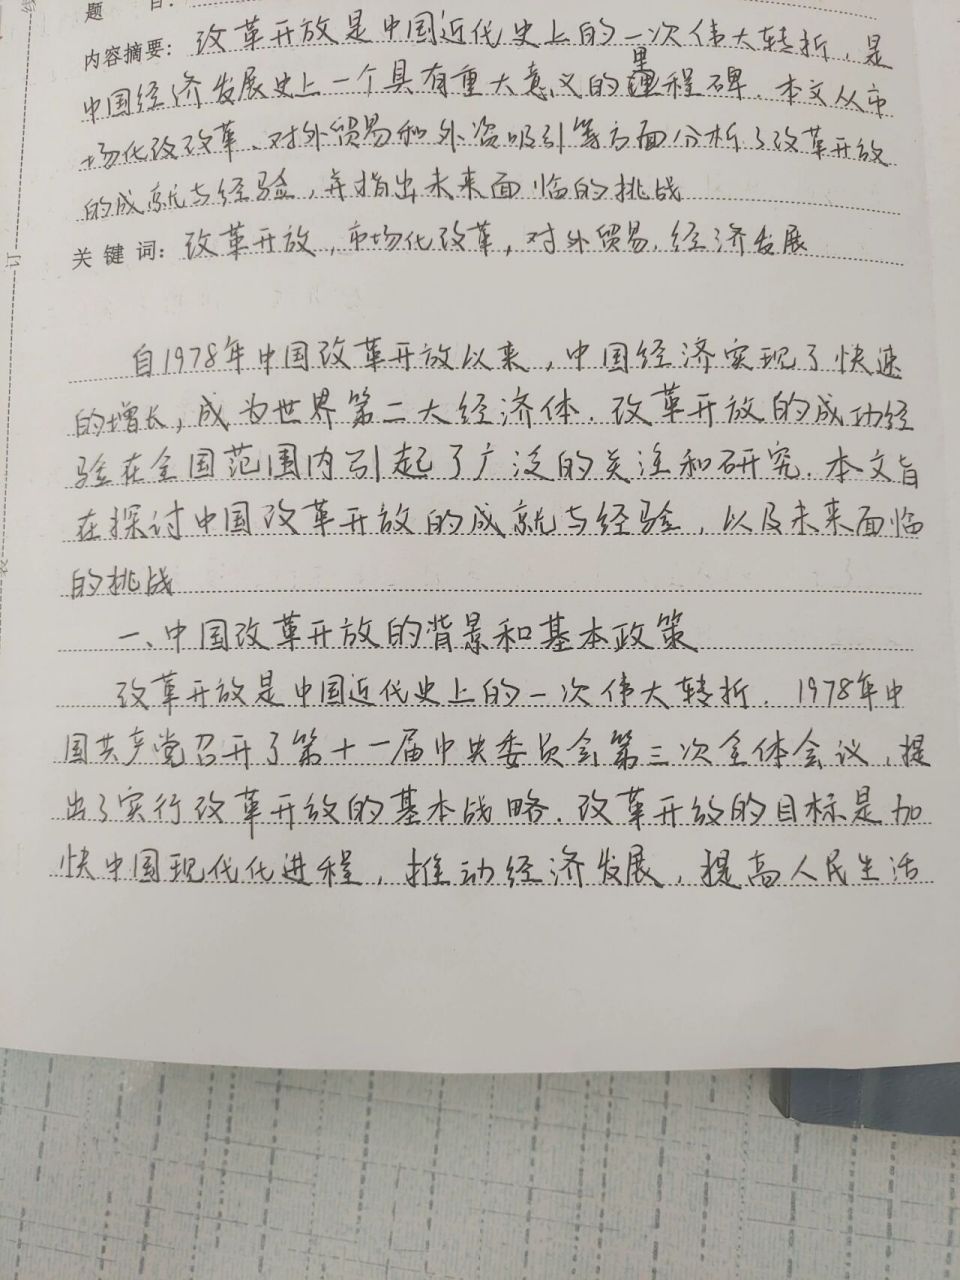 题 目:
内容摘要: 改革开放是中国近代史上的一次伟大转折,是
中国经济发展史上一个具有重大意义的里程碑.本文从市
场化改改革、对外贸易和外资吸引等方面分析了改革开放
的成就与经验,并指出未来面临的挑战
关键词: 改革开放,市场化改革,对外贸易,经济发展
自1978年中国改革开放以来,中国经济实现了快速
的增长,成为世界第二大经济体.改革开放的成功经
验在全国范围内引起了广泛的关注和研究.本文旨
在探讨中国改革开放的成就与经验,以及未来面临
的挑战
一、中国改革开放的背景和基本政策
改革开放是中国近代史上的一次伟大转折.1978年中
国共产党召开了第十一届中央委员会第三次全体会议,提
出了实行改革开放的基本战略.改革开放的目标是加
快中国现代化进程,推动经济发展,提高人民生活
线
订